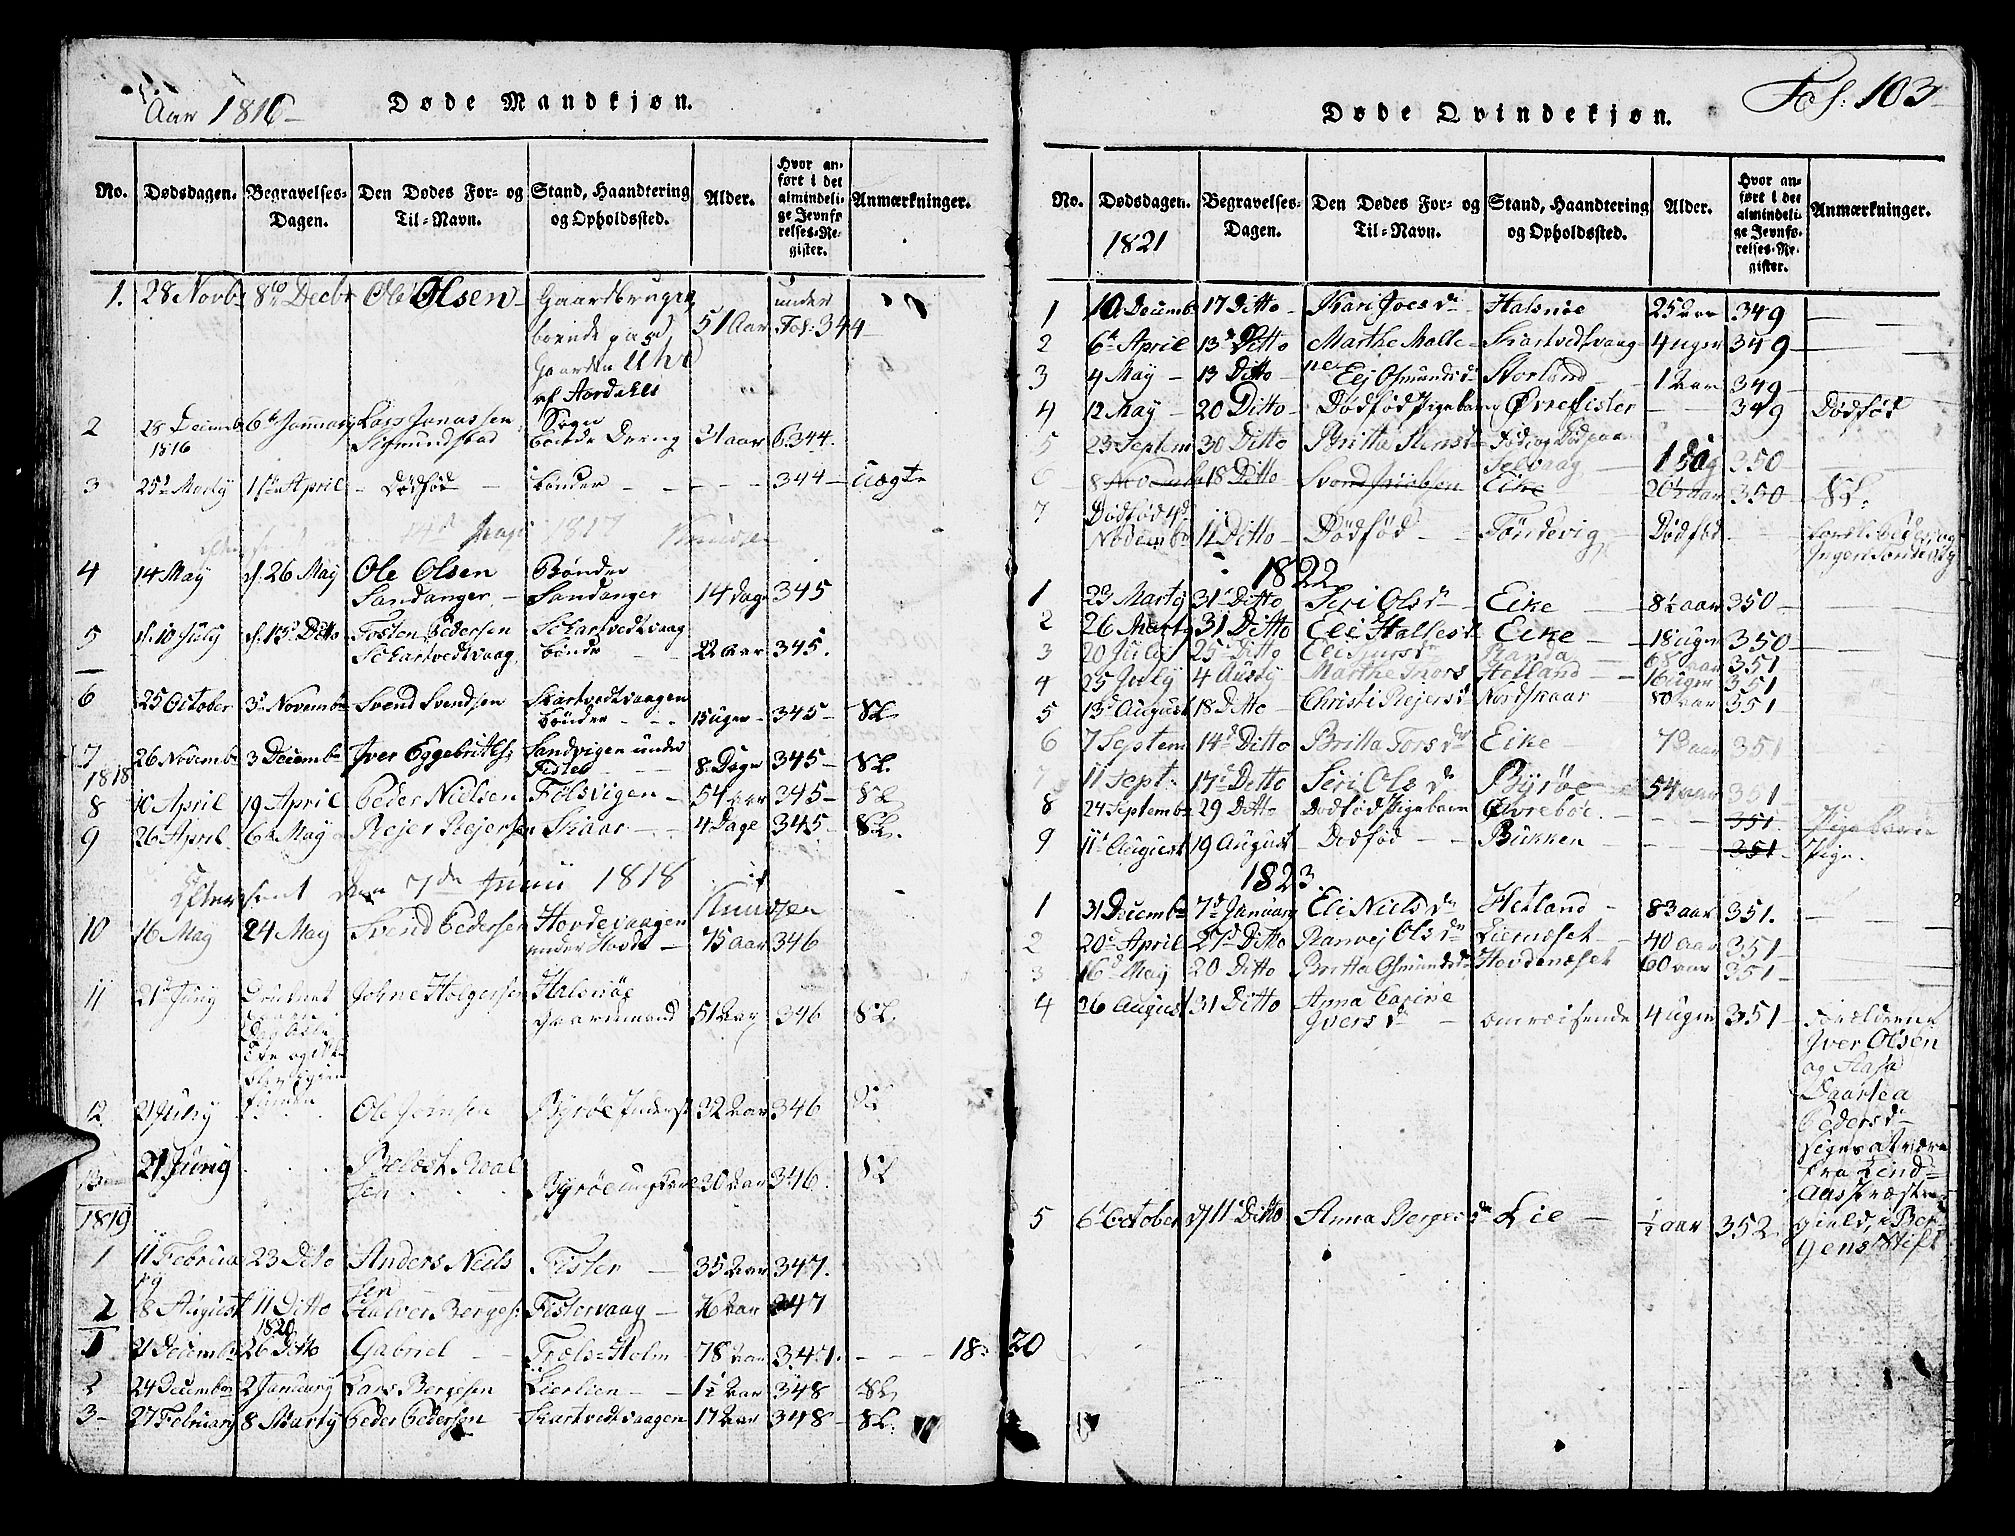 Aar 1816
Døde Mandkjøn.
No. Dødsdagen. Begravelses-Dagen. Den Dødes For- og Til-Navn. Stand, Haandtering og Opholdssted. Alder. Hvor anført i det almindelige Jevnførelses-Register. Anmærkninger.
1. 28 Novbr 8de Decbr Ole Olsen Gaardbruger boende paa Gaarden 51 Aar under Fol. 344
af Aardahls Sogn
2 28 Decembr 1816 6te January Lars Jonassen Sigmundstad bønde Dreng 31 aar 344.
3 25de Marty 1ste April Dødfød bønder 344 uægte
1817 Knudsen
4 14 May d. 26 May Ole Olsen Sandanger Bønder Sandanger 14 dage 345
5 d. 10 July d. 13 Ditto Tosten Pedersen Schartvedtvaag Schartvedtvaag bønde 22 aar 345.
6 25 October 3de Novembr Svend Svendsen Skartvedtvaagen bønder 15 uger 345 SL
7 26 Novembr 3 Decembr Iver Eggebritts: Sandvigen under Fister 8 Dage 345 SL.
1818
8 10 April 19 April Peder Nielsen Følsvigen 54 aar 345 SL
9 26 April 6te May Rejer Rejersen Skaar 4 Dage 345 SL.
Efter sent den 7de Junii 1818 Knudsen
10 16 May 24 May Svend Pedersen Hovdevaagen under Hovde 75 aar 346
11 21de Juny Druknet Johne Holgersen Halsnøe gaardmand 51 aar 346 SL.
funden
12 21 Juny Ole Johnsen Byrøe Inderst 32 aar 346 SL
21 Juny Byrøe ungkarl 20 aar 346. SL
1819
1 11 February 23 Ditto Anders Nielssen Fister 35 aar 347.
2 8 August 11 Ditto Halver Berges: Fistervaag 76 aar 347
1820
1 21 Decembr 26 Ditto Gabriel Træls-Holm 78 aar 347. 18
2 24 Decembr 2 January Lars Bergesen Lierlien 1½ aar 348 SL
3 27 February 8 Marty Peder Pedersen Skartvedtvaagen 17 aar 348 SL.
Fol: 103
Døde Qvindekjøn.
No. Dødsdagen. Begravelses-Dagen. Den Dødes For- og Til-Navn. Stand, Haandtering og Opholdssted. Alder. Hvor anført i det almindelige Jevnførelses-Register. Anmærkninger.
1821
1 10 Decembr 17 Ditto Kari Joesdr Halsnøe 25 aar 349
2 6te April 13de Ditto Marthe Malle Skartvedtvaag 4 uger 349
3 4 May 13 Ditto Elj Osmundsdr Norland 1 aar 349
4 12 May 20 Ditto Dødfød Pigebarn Øvrefister 349 Dødfød
5 23 Septem 30 Ditto Britta Stensdr Selvaag 1 dag 350
6 8 Novembr 18 Ditto Svend Jacobsen Eike 20½ aar 350 SL.
7 Dødfød 4de Novembr 11 Ditto Dødfød Tøndevig Dødfød
1822
1 23 Marty 31 Ditto Siri Olsdr Eike 8½ aar 350
2 26 Marty 31 Ditto Eli Hallesdr Eike 18 uger 350
3 20 July 25 Ditto Eli Randa 68 aar 351
4 25 July 4 Augusty Marthe Thors Hetland 16 uger 351
5 13de August 18 Ditto Christi Rejersdr Nordskaar 80 aar 351
6 7 Septem 14de Ditto Britta Torsdr Eike 73 aar 351
7 11 Sept. 17de Ditto Siri Olsdr Byrøe 54 aar 351
8 24 Septembr 29 Ditto Dødfød Pigebarn Øvrebøe 351. Pigebarn
9 11 August 19 August Dødfød Bukken 351 Pige.
1823
1 31 Decembr 7de January Eli Nielsdr Hetland 83 aar 351.
2 20de April 27de Ditto Ranvej Olsdr Liernæset 40 aar 351
3 16de May 20 Ditto Britta Osmundsdr Hovdenæset 60 aar 351
4 26 August 31 Ditto Anna Carine Iversdr omreisende 4 uger 351 Forældrene Iver Olsen og Daartea Pedersdr siges at være fra Lindaas Præstegield, i Bergens Stift
5 6 October 11 Ditto Anna Bergesdr Lie ½ aar 352
20